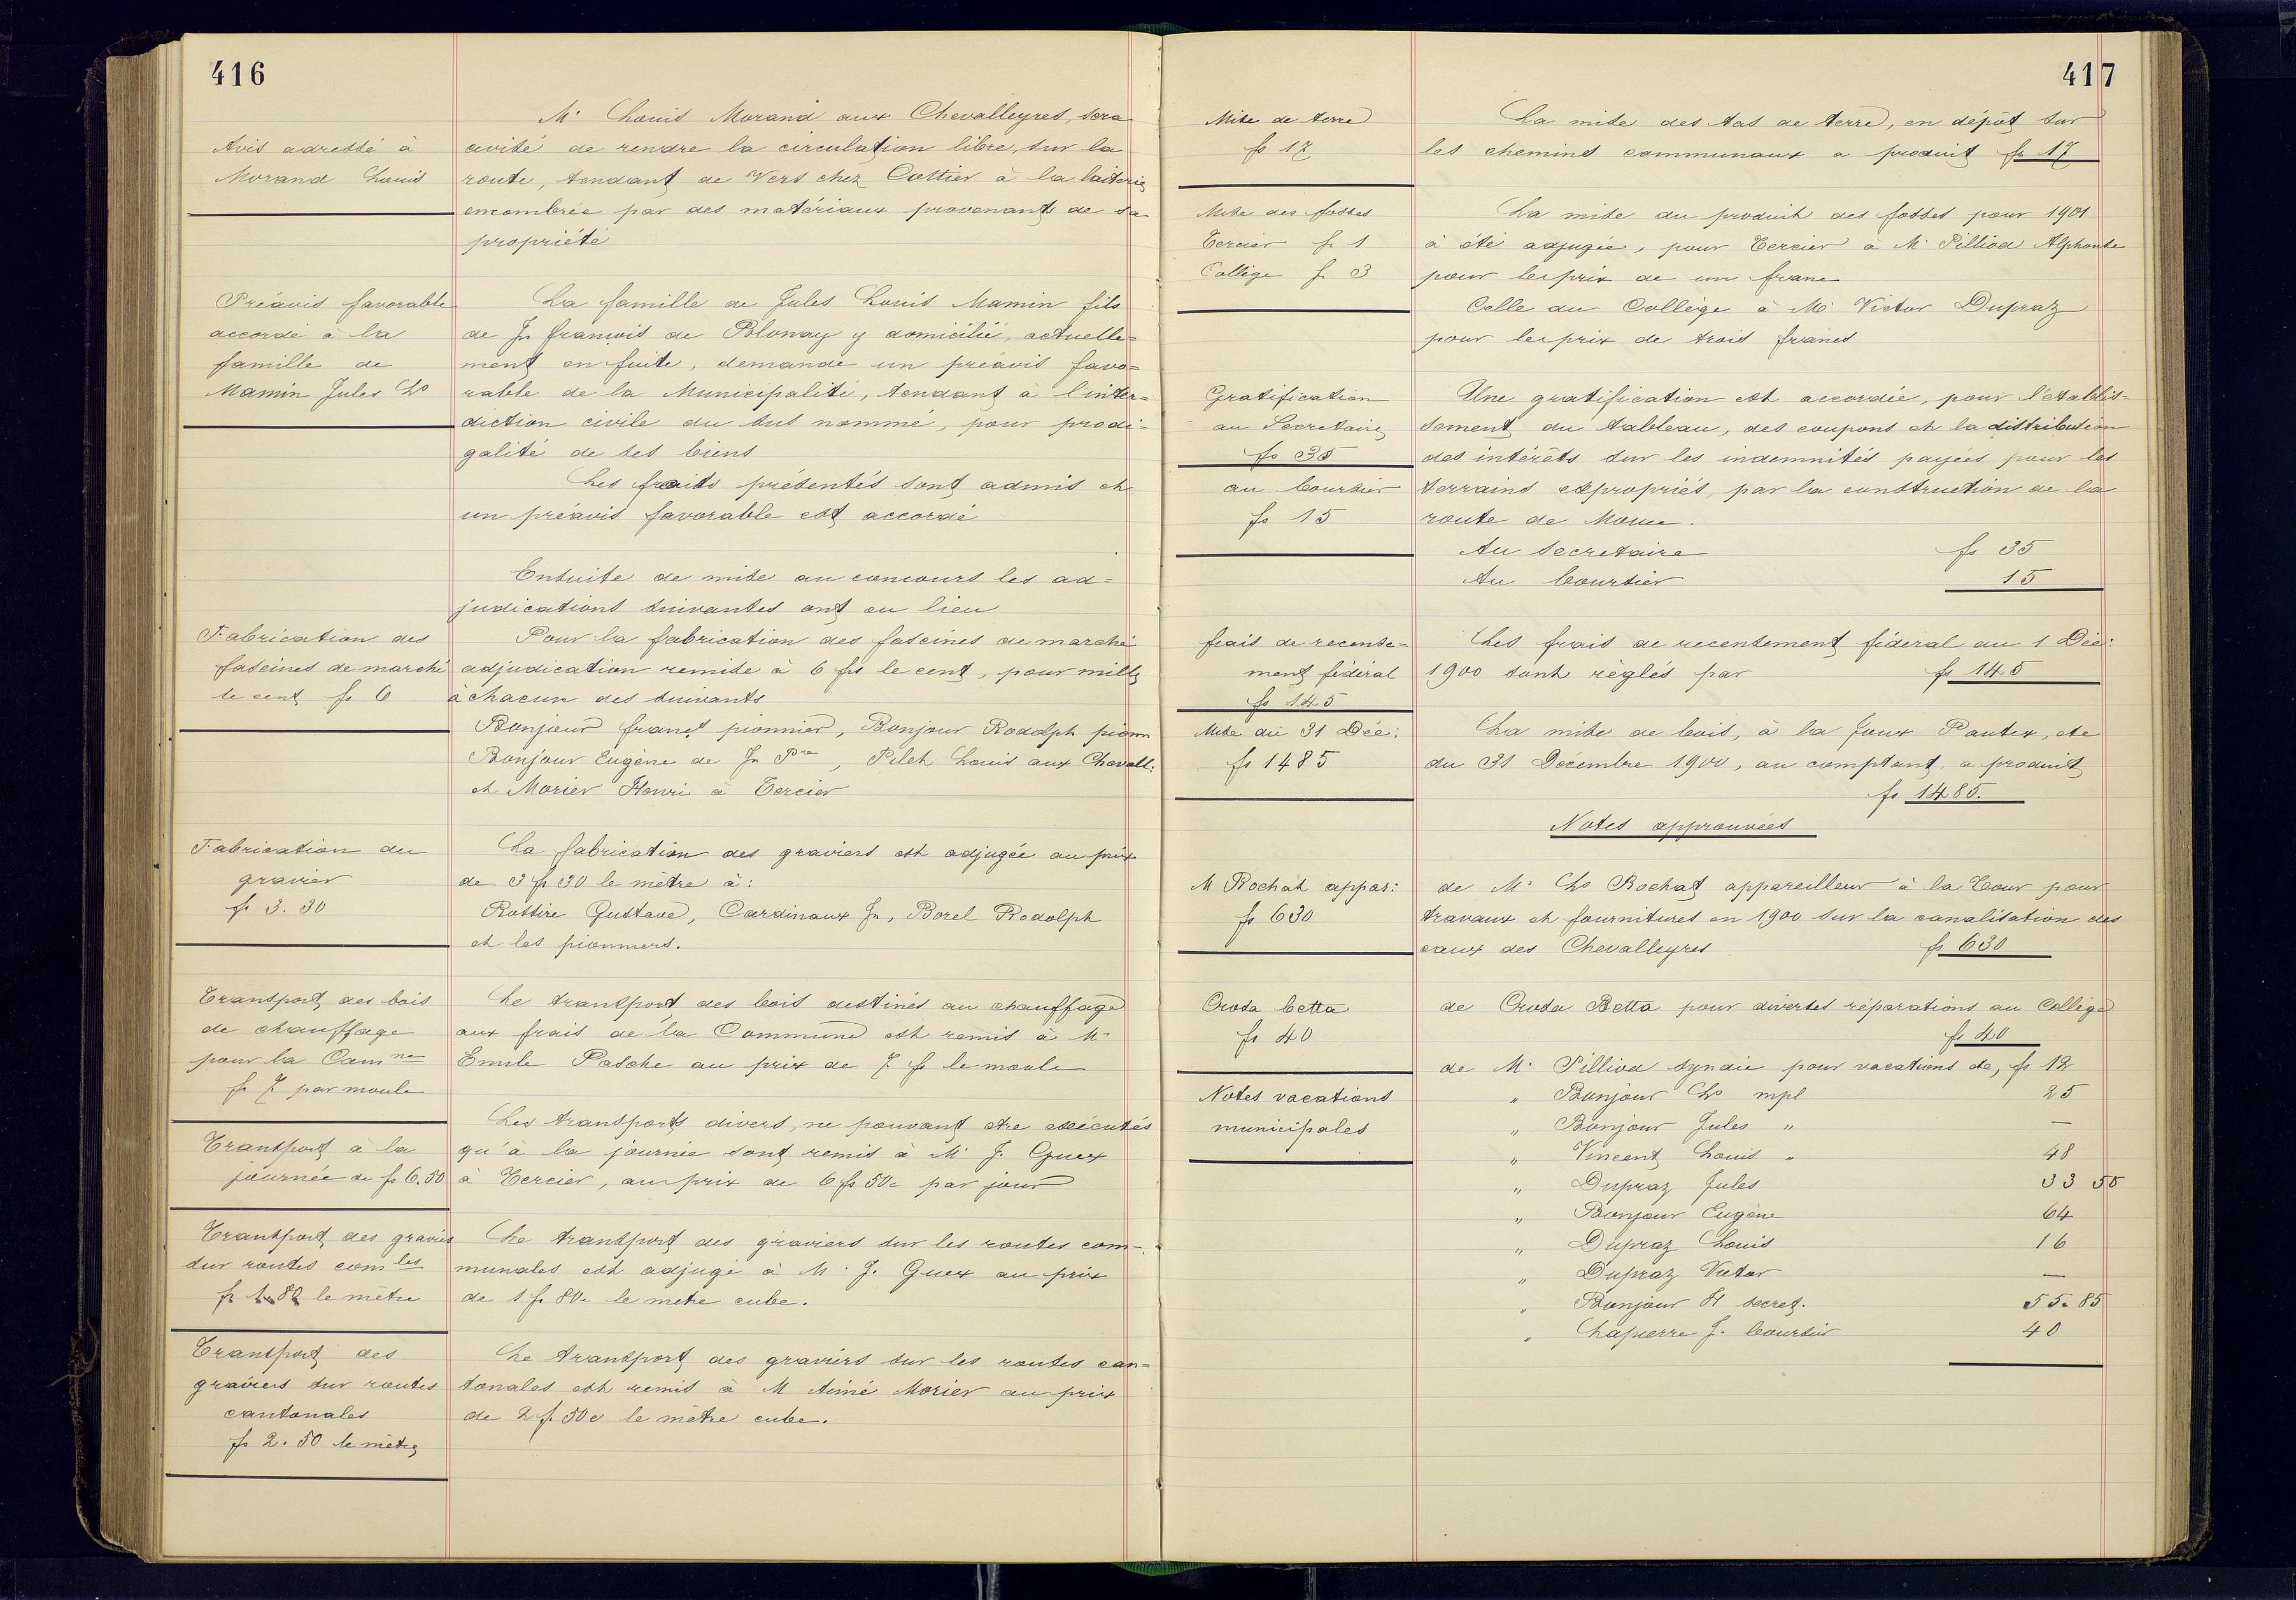 416
Mr Louis Morand aux Chevalleyres, sera
Avis adressé à
Morand Louis
avisé de rendre la circulation libre, sur la
route, tendant de Vers chez Cottier à la laiterie
encombrée par des matériaux provenant de sa
propriété
Préavis favorable
accordé à la
famille de
Mamin Jules Ls
La famille de Jules Louis Mamin fils
de Jn François de Blonay y domicilié, actuelle=
ment en fuite, demande un préavis favo=
rable de la Municipalité, tendant à l'inter=
diction civile du sus nommé, pour prodi=
galité de ses biens
Les faits présentés sont admis et
un préavis favorable est accordé
Ensuite de mise au concours les ad=
judications suivantes ont eu lieu
Fabrication des
fascines de marché
le cent fr 6
Pour la fabrication des fascines de marché
adjudication remise à 6 frs le cent, pour mille
à chacun des suivants
Bonjour franç. pionnier, Bonjour Rodolph pionn
Bonjour Eugène de Jn Pre, Pilet Louis aux Chevall:
et Morier Henri à Tercier
Fabrication du
gravier
fr 3. 30
La fabrication des graviers est adjugée au prix
de 3 fr 30 le mètre à:
Rossire Gustave, Cardinaux Jn, Borel Rodolph
et les pionniers.
Transport des bois
de chauffage
pour la Comne
fr 7 par moule
Le transport des bois destinés au chauffage
aux frais de la Commune est remis à Mr
Emile Pasche au prix de 7 fr le moule
Transport à la
journée de fr 6.50
Les transports divers, ne pouvant être exécutés
qu'à la journée sont remis à Mr J. Guex
à Tercier, au prix de 6 fr 50c par jour
Transport des graviers
sur routes comles
fr 1.80 le mètre
Le transport des graviers sur les routes com=
munales est adjugé à Mr J. Guex au prix
de 1 fr 80c le mètre cube.
Transport des
graviers sur routes
cantonales
fr 2. 50 le mètre
Le transport des graviers sur les routes can=
tonales est remis à M Aimé Morier au prix
de 2 fr. 50c le mètre cube.
417
Mise de terre
fr 17
La mise des tas de terre, en dépôt sur
les chemins communaux a produit fr 17
Mise des fosses
Tercier fr 1
Collège fr 3
La mise du produit des fosses pour 1901
à été adjugée, pour Tercier à Mr Pilliod Alphonse
pour le prix de un franc
Celle du Collège à Mr Victor Dupraz
pour le prix de trois francs
Gratification
au Secretaire
fr 35
au boursier
fr 15
Une gratification est accordée, pour l'établis=
sement du tableau, des coupons et la distribution
des intérêts sur les indemnités payées pour les
terrains expropriés, par la construction de la
route de
Au secretaire fr 35
Au boursier 15
frais de recense=
ment fédéral
fr 145
Les frais de recensement fédéral au 1 Déc:
1900 sont réglés par fr 145
Mise du 31 Déc:
fr 1485
La mise de bois, à la Joux Pantex, etc
du 31 Décembre 1900, au comptant, a produit
fr 1485.
Notes approuvées
M Rochat appar:
fr 630
de Mr Ls Rochat appareilleur à la Tour pour
travaux et fournitures en 1900 sur la canalisation des
eaux des Chevalleyres fr 630
Croda betta
fr 40
de Croda Betta pour diverses réparations au Collège
fr 40
Notes vacations
municipales
de Mr Pilliod syndic pour vacations etc, fr 12
" Bonjour Ls mpl 25
" Bonjour Jules " —
" Vincent Louis " 48
" Dupraz Jules 33 55
" Bonjour Eugène 64
" Dupraz Louis 16
" Dupraz Victor —
" Bonjour H secret. 55. 85
" Lapierre J. boursier 40